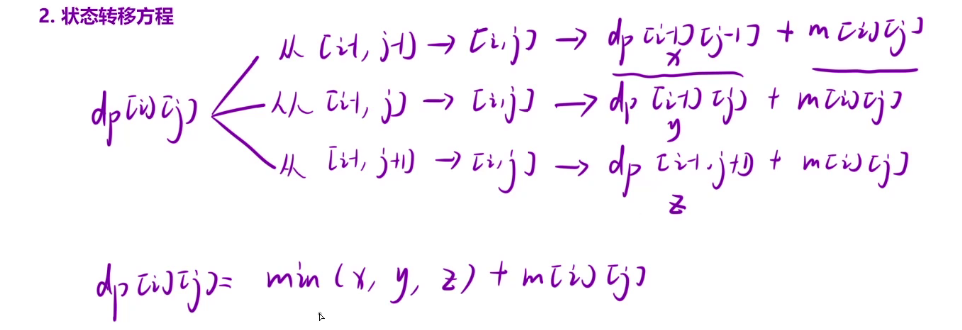 2. 状态转移方程
从 [i-1, j-1] → [i,j] → dp[i-1][j-1] + m[i][j]
x
dp[i][j] 从 [i-1, j] → [i,j] → dp[i-1][j] + m[i][j]
y
从 [i-1, j+1] → [i,j] → dp[i-1, j+1] + m[i][j]
z
dp[i][j] = min(x, y, z) + m[i][j]